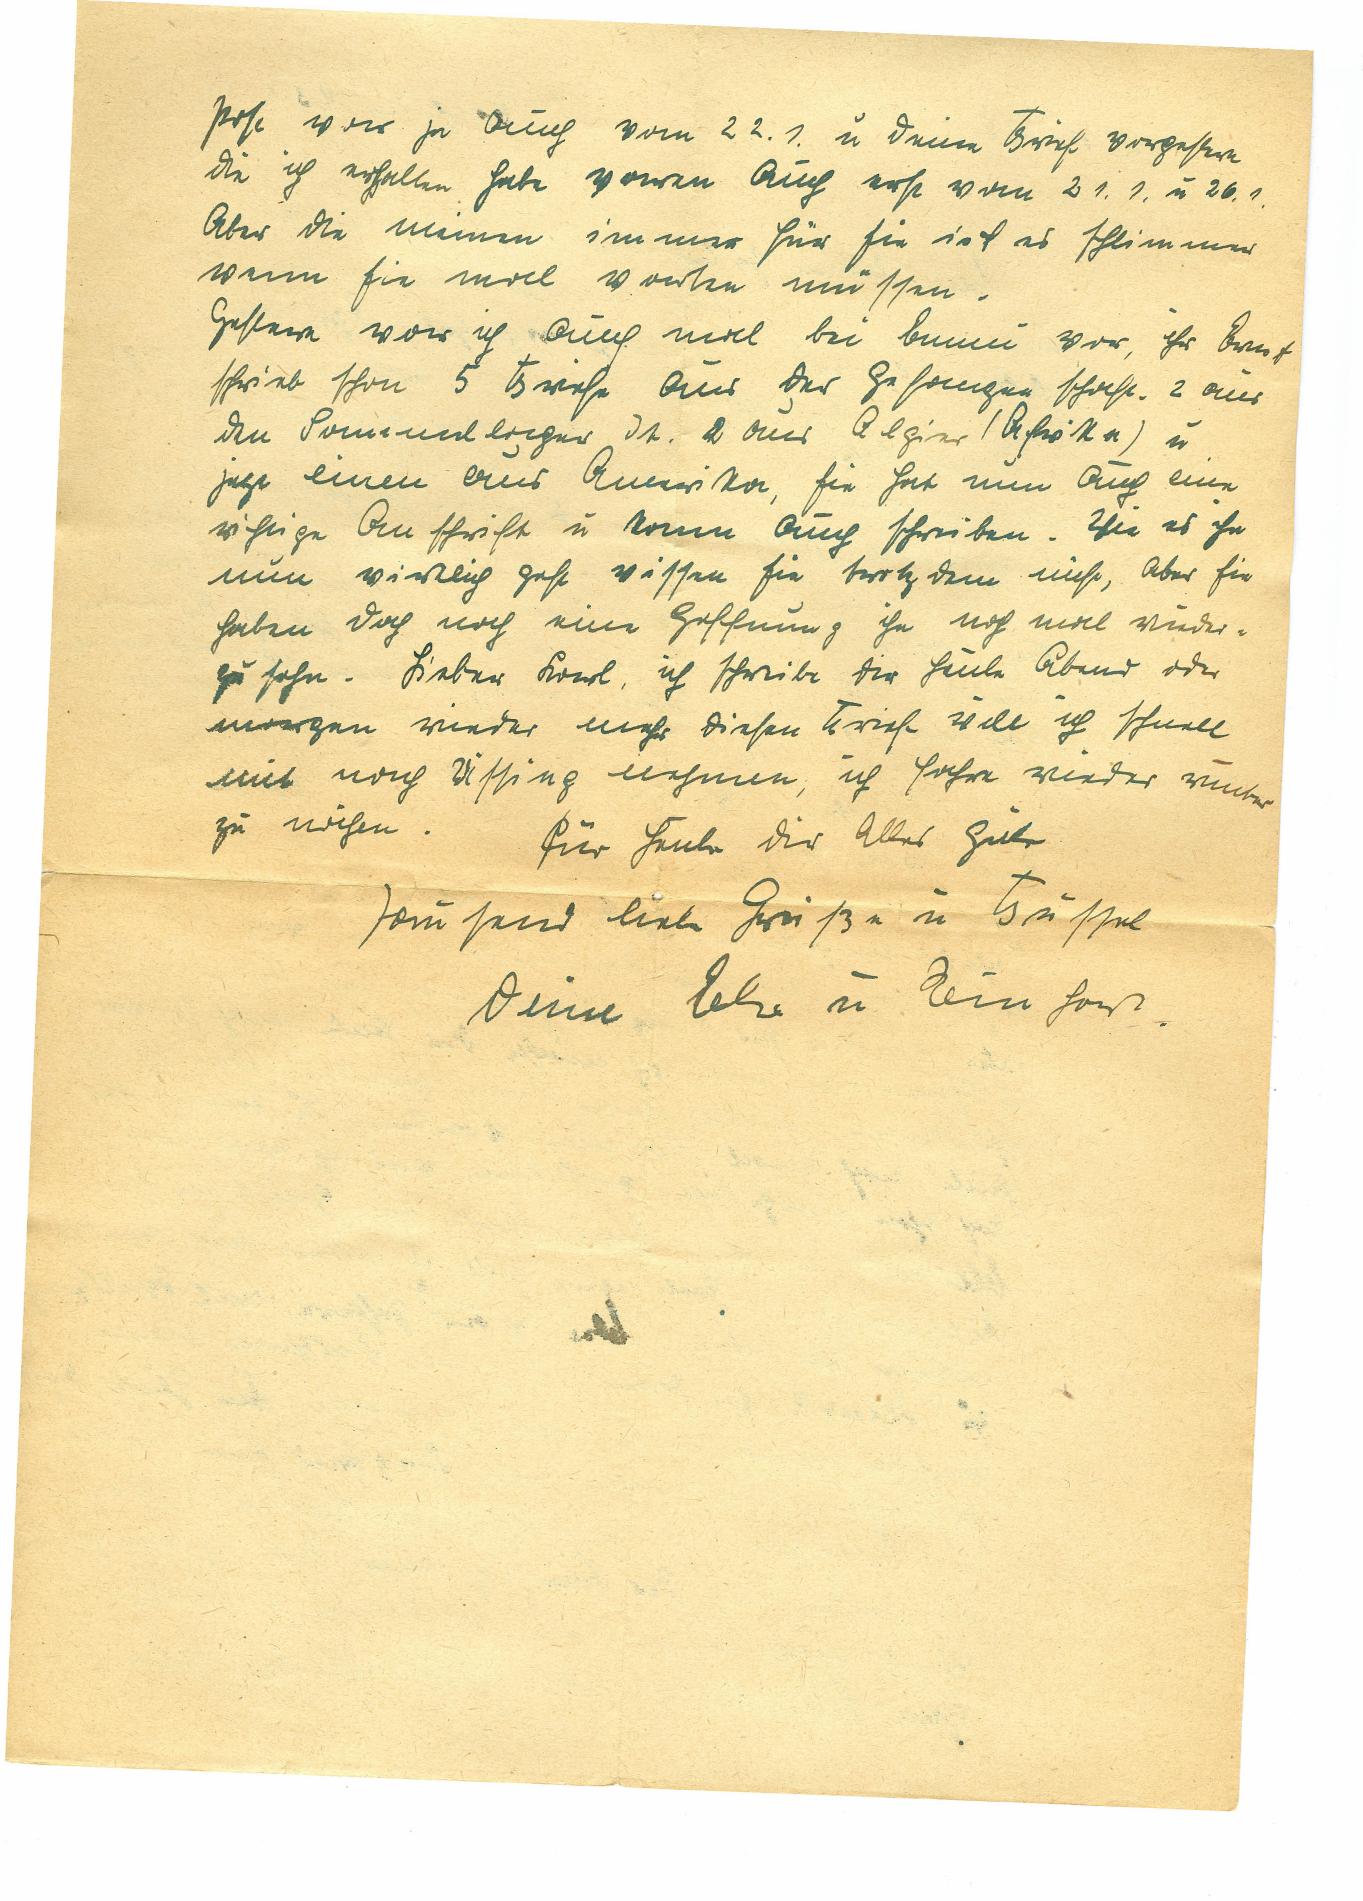 Post war ja auch vom 22.1. u deine Briefe vorgestern
die ich erhalten habe waren auch erst vom 21.1. u 26.1.
Aber die meinen immer für sie ist es schlimmer
wenn sie mal warten müssen.
Gestern war ich auch mal bei vor, ihr Ernst
schrieb schon 5 Briefe aus der Gefangenschaft. 2 aus
den Sammellager It. 2 aus Algier (Afrika) u
jetzt einen aus Amerika, sie hat nun auch eine
richtige Anschrift u kann auch schreiben. Wie es ihn
nun wirklich geht wissen sie trotzdem nicht, aber sie
haben doch noch eine Hoffnung ihn noch mal wieder-
zu sehn. Lieber Karl, ich schreibe dir heute Abend oder
morgen wieder mehr diesen Brief will ich schnell
mit nach nehmen, ich fahre wieder runter
zu nähen. Für heute dir Alles Gute
Tausend liebe Grüße u Bussel
Deine u Reinhard.